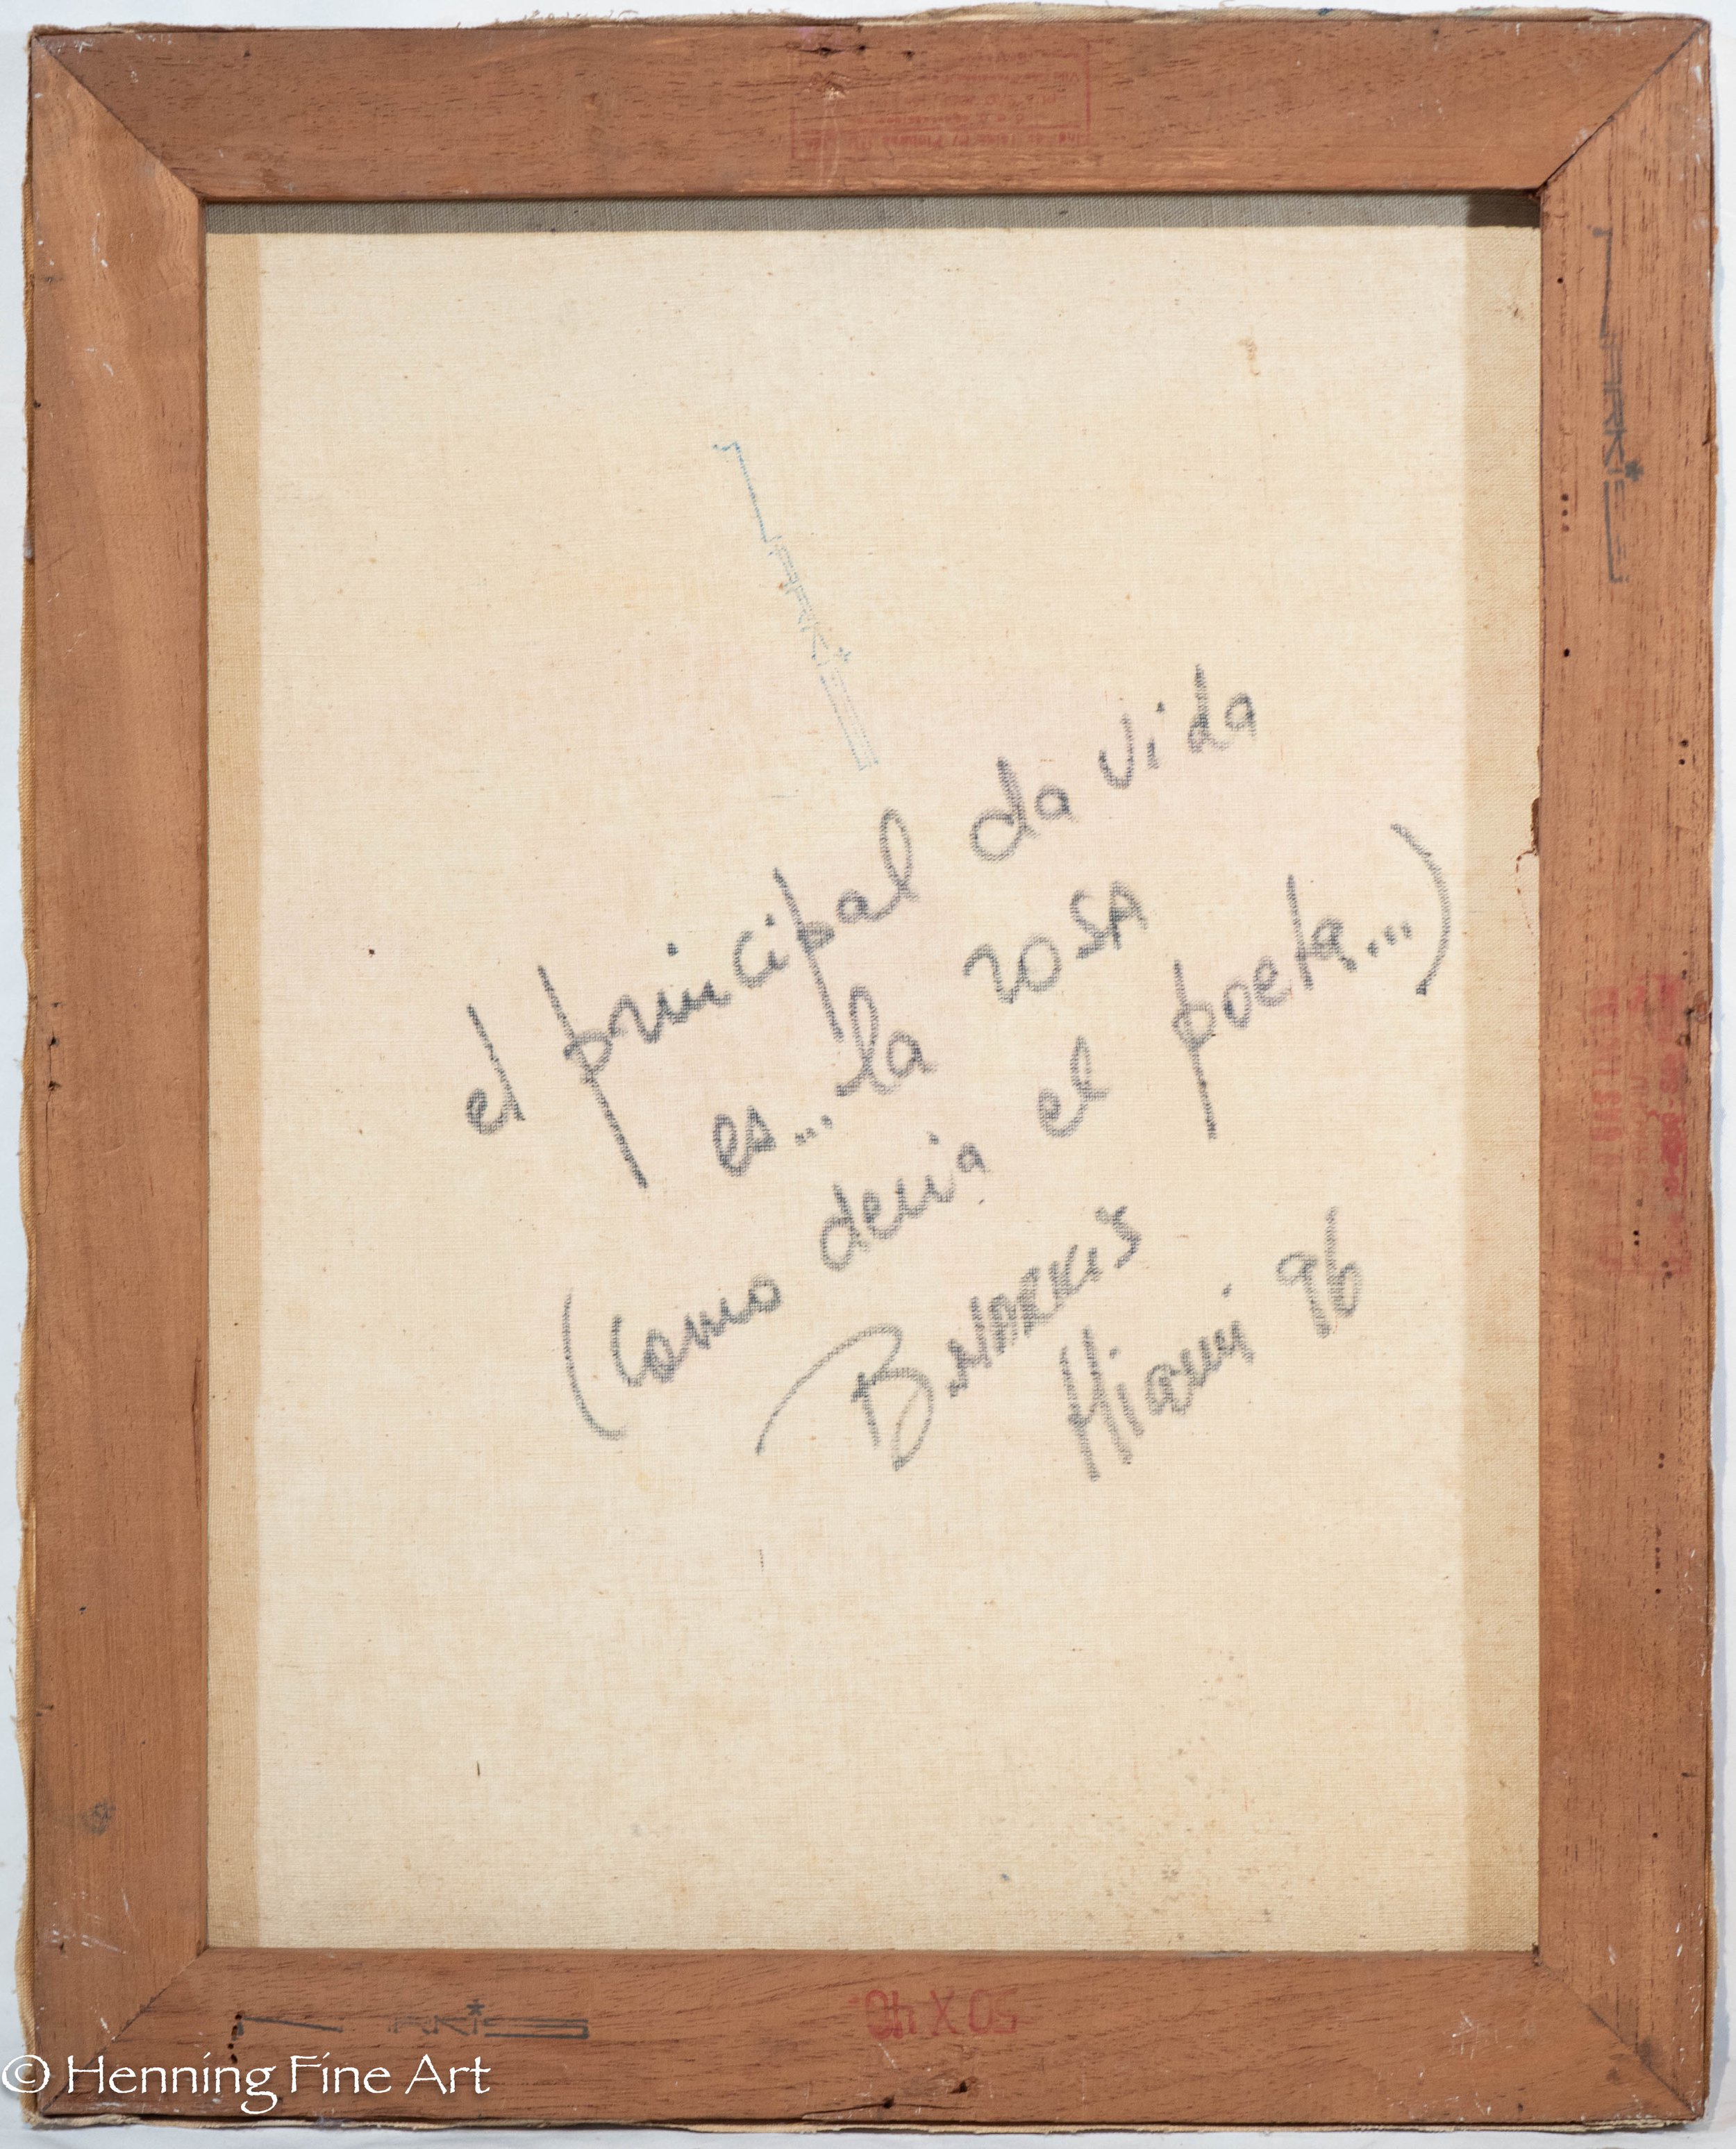 el principal da vida
es... la rosa
(como decia el poeta...)
Miami 96
50 X 40
© Henning Fine Art